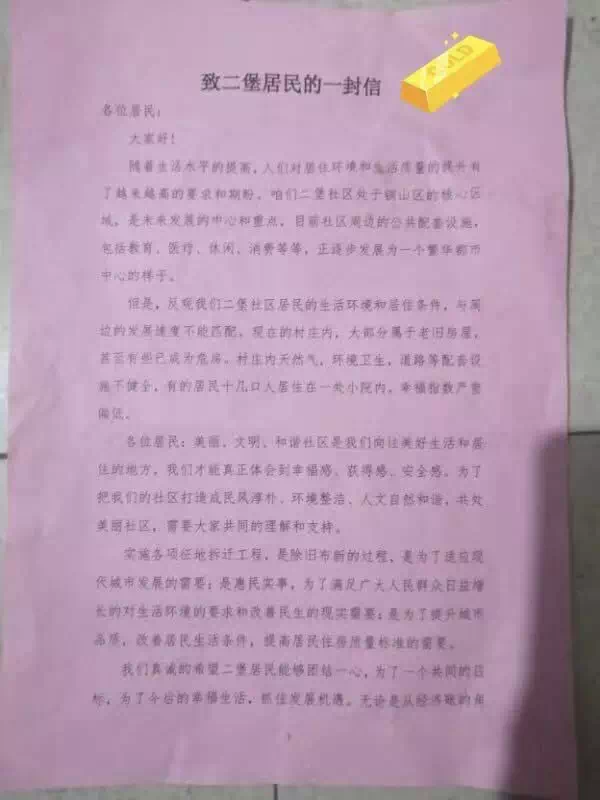 GOLD
致二堡居民的一封信
各位居民：
大家好！
随着生活水平的提高，人们对居住环境和生活质量的提升有
了越来越高的要求和期盼。咱们二堡社区处于铜山区的核心区
域，是未来发展的中心和重点，目前社区周边的公共配套设施，
包括教育、医疗、休闲、消费等等，正逐步发展为一个繁华都市
中心的样子。
但是，反观我们二堡社区居民的生活环境和居住条件，与周
边的发展速度不能匹配，现在的村庄内，大部分属于老旧房屋，
甚至有些已成为危房。村庄内天然气，环境卫生，道路等配套设
施不健全，有的居民十几口人居住在一处小院内，幸福指数严重
偏低。
各位居民：美丽、文明、和谐社区是我们向往美好生活和居
住的地方，我们才能真正体会到幸福感、获得感、安全感。为了
把我们的社区打造成民风淳朴、环境整洁、人文自然和谐，共处
美丽社区，需要大家共同的理解和支持。
实施各项征地拆迁工程，是除旧布新的过程，是为了适应现
代城市发展的需要；是惠民实事，为了满足广大人民群众日益增
长的对生活环境的要求和改善民生的现实需要；是为了提升城市
品质，改善居民生活条件，提高居民住房质量标准的需要。
我们真诚的希望二堡居民能够团结一心，为了一个共同的目
标，为了今后的幸福生活，抓住发展机遇。无论是从经济账的角
1